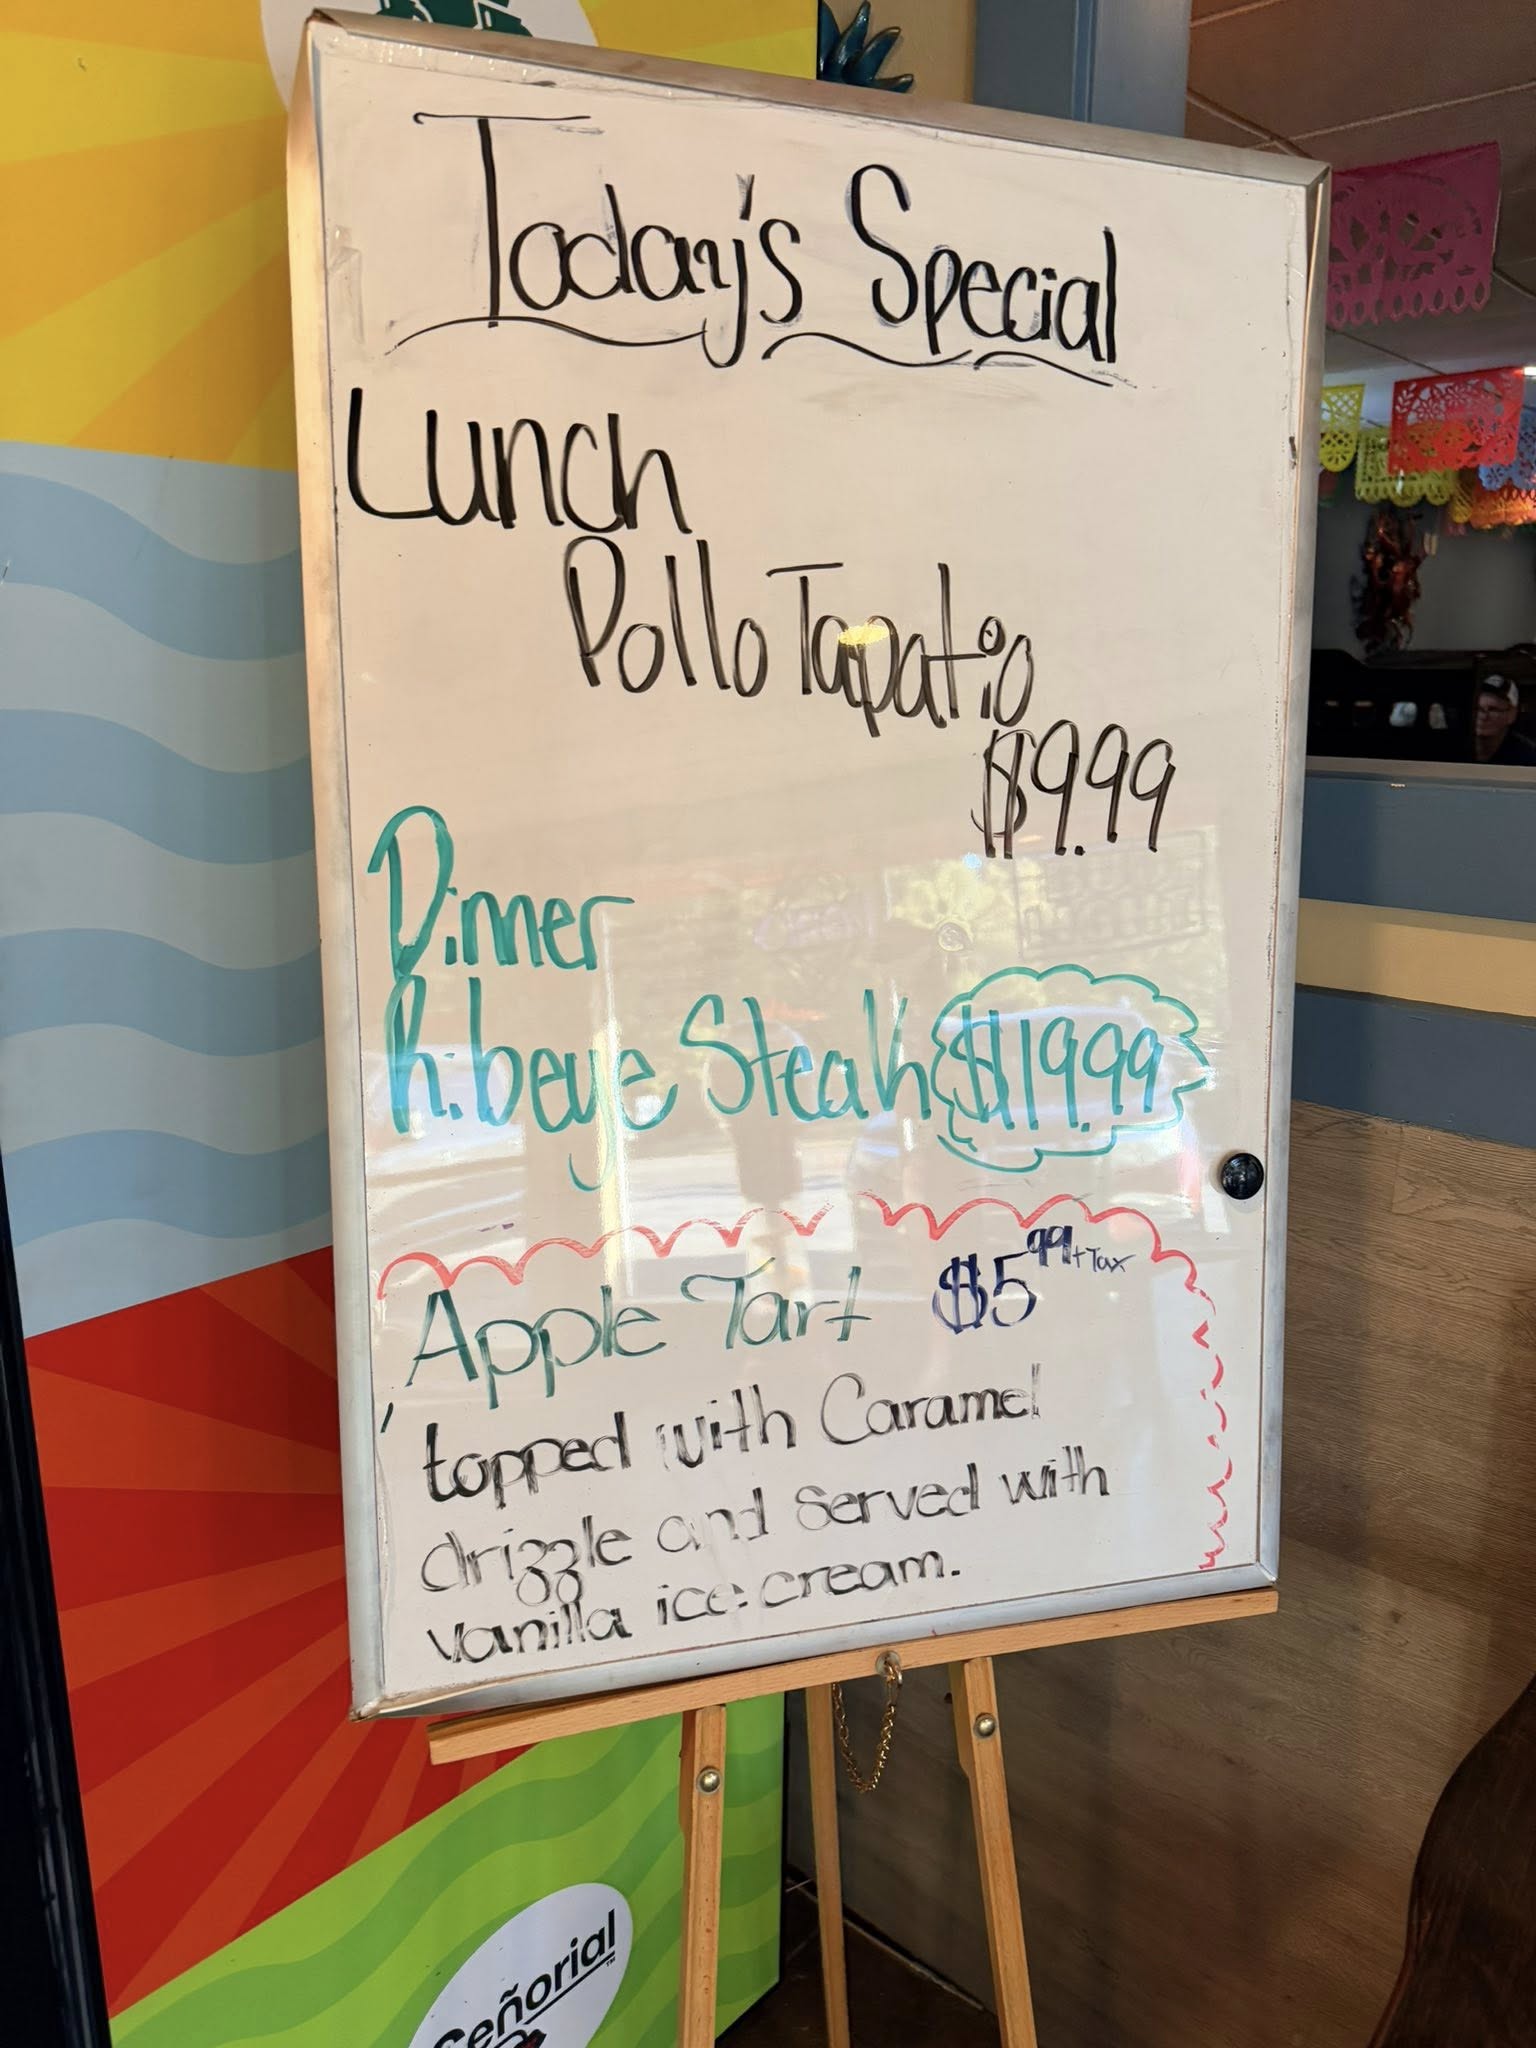 Today's Special
Lunch
Pollo Tapatio
$9.99
Dinner
Ribeye Steak $19.99
Apple Tart $5 99 + Tax
topped with Caramel
drizzle and served with
vanilla ice cream.
Señorial™